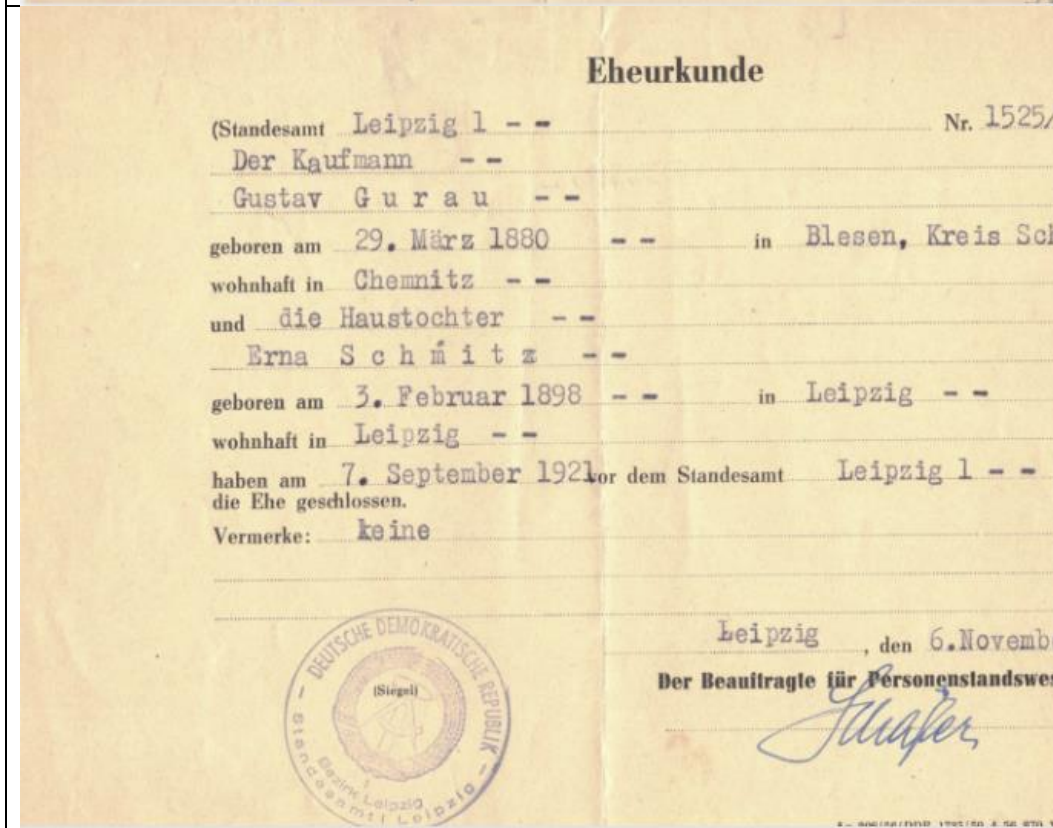 Eheurkunde
(Standesamt Leipzig 1 - - Nr. 1525/
Der Kaufmann - -
Gustav Gurau - -
geboren am 29. März 1880 - - in Blesen, Kreis Sch
wohnhaft in Chemnitz - -
und die Haustochter - -
Erna Schmitz - -
geboren am 3. Februar 1898 - - in Leipzig - -
wohnhaft in Leipzig - -
haben am 7. September 1921 vor dem Standesamt Leipzig 1 - -
die Ehe geschlossen.
Vermerke: keine
Leipzig, den 6. Novemb
Der Beauftragte für Personenstandswes
(Siegel)
DEUTSCHE DEMOKRATISCHE REPUBLIK
Standesamt I Leipzig
Bezirk Leipzig
Schäfer